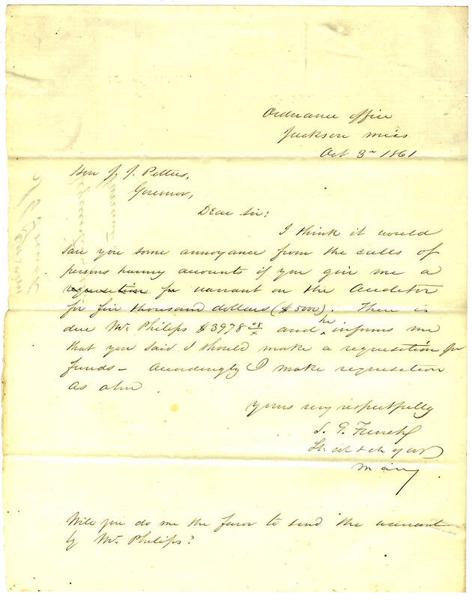 Ordnance office
Jackson Miss
Oct 3rd 1861
Hon J. J. Pettus,
Governor,
Dear Sir:
I think it would
save you some annoyance from the calls of
persons having accounts if you give me a
requisition for warrant on the Auditor
for five thousand dollars ($5000). There is
due Mr. Philips $3978 and he informs me
that you said I should make a requisition for
funds - Accordingly I make requisition
as above
Yours very respectfully
S. G. French
Lt Col & Ch of Ord
Will you do me the favor to send the warrant
by Mr. Philips?